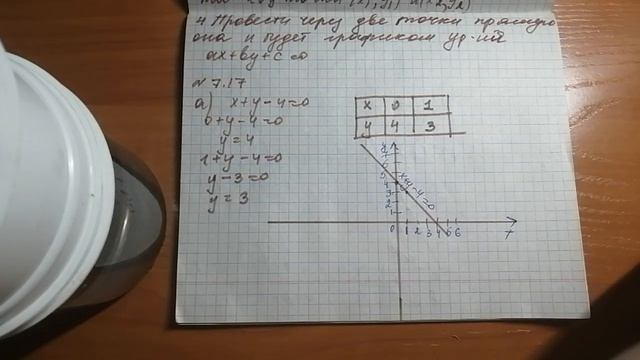 4 Провести через две точки прямую
она и будет графиком ур-ий
ax+by+c=0
№7.17
а) x+y-4=0
0+y-4=0
y=4
1+y-4=0
y-3=0
y=3
x 0 1
y 4 3
x+y-4=0
0 1 2 3 4 5 6